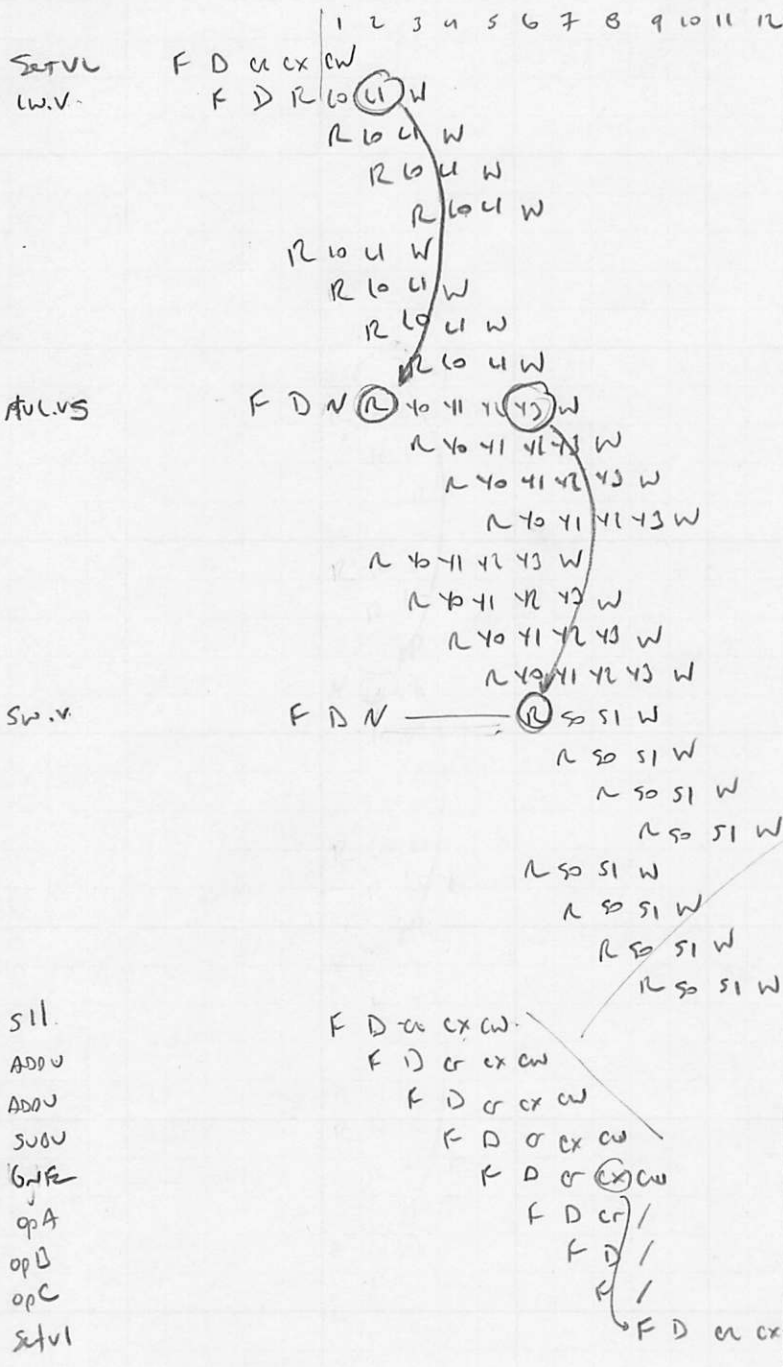 1 2 3 4 5 6 7 8 9 10 11 12
SETVL F D cr cx cw
LW.V. F D R L0 L1 W
R L0 L1 W
R L0 L1 W
R L0 L1 W
R L0 L1 W
R L0 L1 W
R L0 L1 W
R L0 L1 W
F D N R Y0 Y1 Y2 Y3 W
R Y0 Y1 Y2 Y3 W
R Y0 Y1 Y2 Y3 W
R Y0 Y1 Y2 Y3 W
R Y0 Y1 Y2 Y3 W
R Y0 Y1 Y2 Y3 W
R Y0 Y1 Y2 Y3 W
R Y0 Y1 Y2 Y3 W
SW.V. F D N R S0 S1 W
R S0 S1 W
R S0 S1 W
R S0 S1 W
R S0 S1 W
R S0 S1 W
R S0 S1 W
R S0 S1 W
sll. F D cr cx cw
ADDU F D cr cx cw
ADDU F D cr cx cw
SUBU F D cr cx cw
BNEZ F D cr cx cw
opA F D cr /
opB F D /
opC F /
Setvl F D cr cx